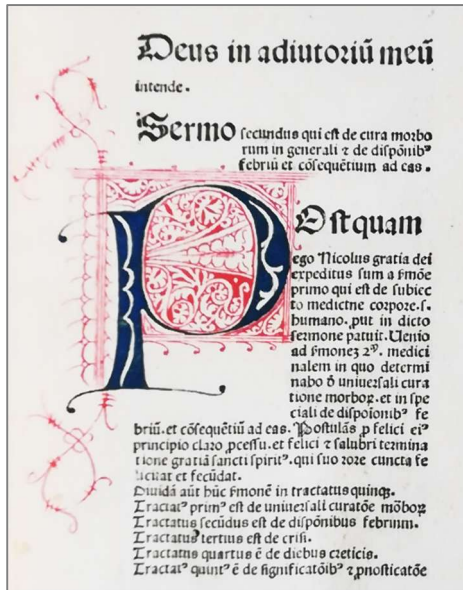 Deus in adiutoriū meū
intende.
Sermo secundus qui est de cura morbo
rum in generali ⁊ de dispōnibꝰ
febriū et cōsequētium ad eas.
POstquam
ego Nicolus gratia dei
expeditus sum a s̄mōe
primo qui est de subiec
to medicine corpore.s.
humano.put in dicto
sermone patuit. Uenio
ad s̄moneʒ 2ᵐ. medici
nalem in quo determi
nabo ð uniuersali cura
tione morboꝝ. et in spe
ciali de dispoionibꝰ fe
briū. et cōsequētiū ad eas. Postulās ꝑ felici eiꝰ
principio claro ꝓcessu. et felici ⁊ salubri termina
tione gratiā sancti spiritꝰ. qui suo rore cuncta fe
licitat et fecūdat.
Diuidā aūt hūc s̄monē in tractatus quinqꝫ.
Tractatꝰ primꝰ est de uniuersali curatōe mōboꝝ
Tractatus secūdus est de dispōnibus febrium.
Tractatus tertius est de crisi.
Tractatus quartus ē de diebus creticis.
Tractatꝰ quintꝰ ē de significatōibꝰ ⁊ ꝓnosticatōe